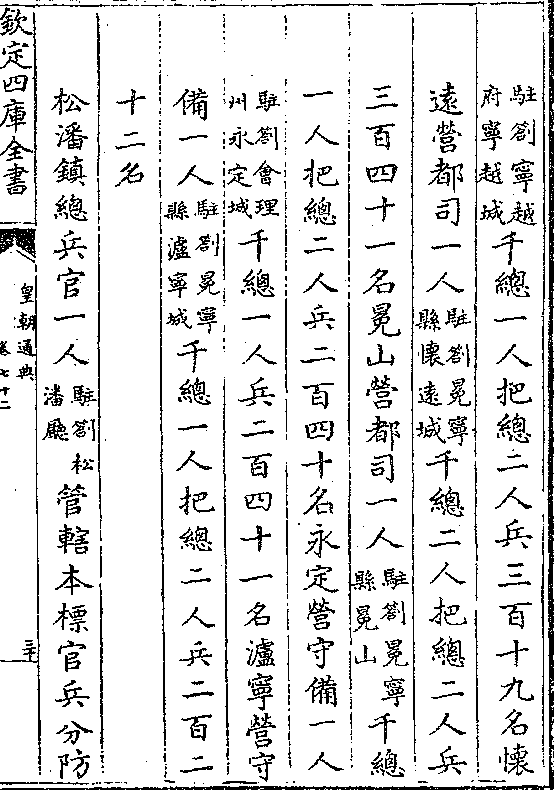 駐劄寧越府寧越城千總一人把總二人兵三百十九名懷
遠營都司一人駐劄冕寧縣懷遠城千總二人把總二人兵
三百四十一名冕山營都司一人駐劄冕寧縣冕山千總
一人把總二人兵二百四十名永定營守備一人
駐劄會理州永定城千總一人兵二百四十一名瀘寧營守
備一人駐劄冕寧縣瀘寧城千總一人把總二人兵二百二
十二名
松潘鎮總兵官一人駐劄松潘廳管轄本標官兵分防
欽定四庫全書
皇朝通典
卷七十二
三十